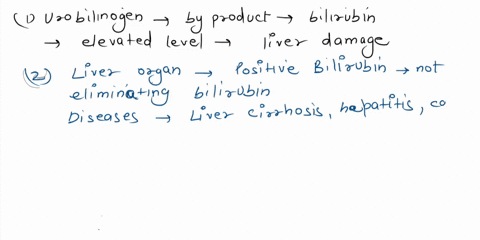 (1) Urobilinogen → by product → bilirubin
→ elevated level → liver damage
(2) Liver organ → Positive Bilirubin → not
eliminating bilirubin
Diseases → Liver cirrhosis, hepatitis, co